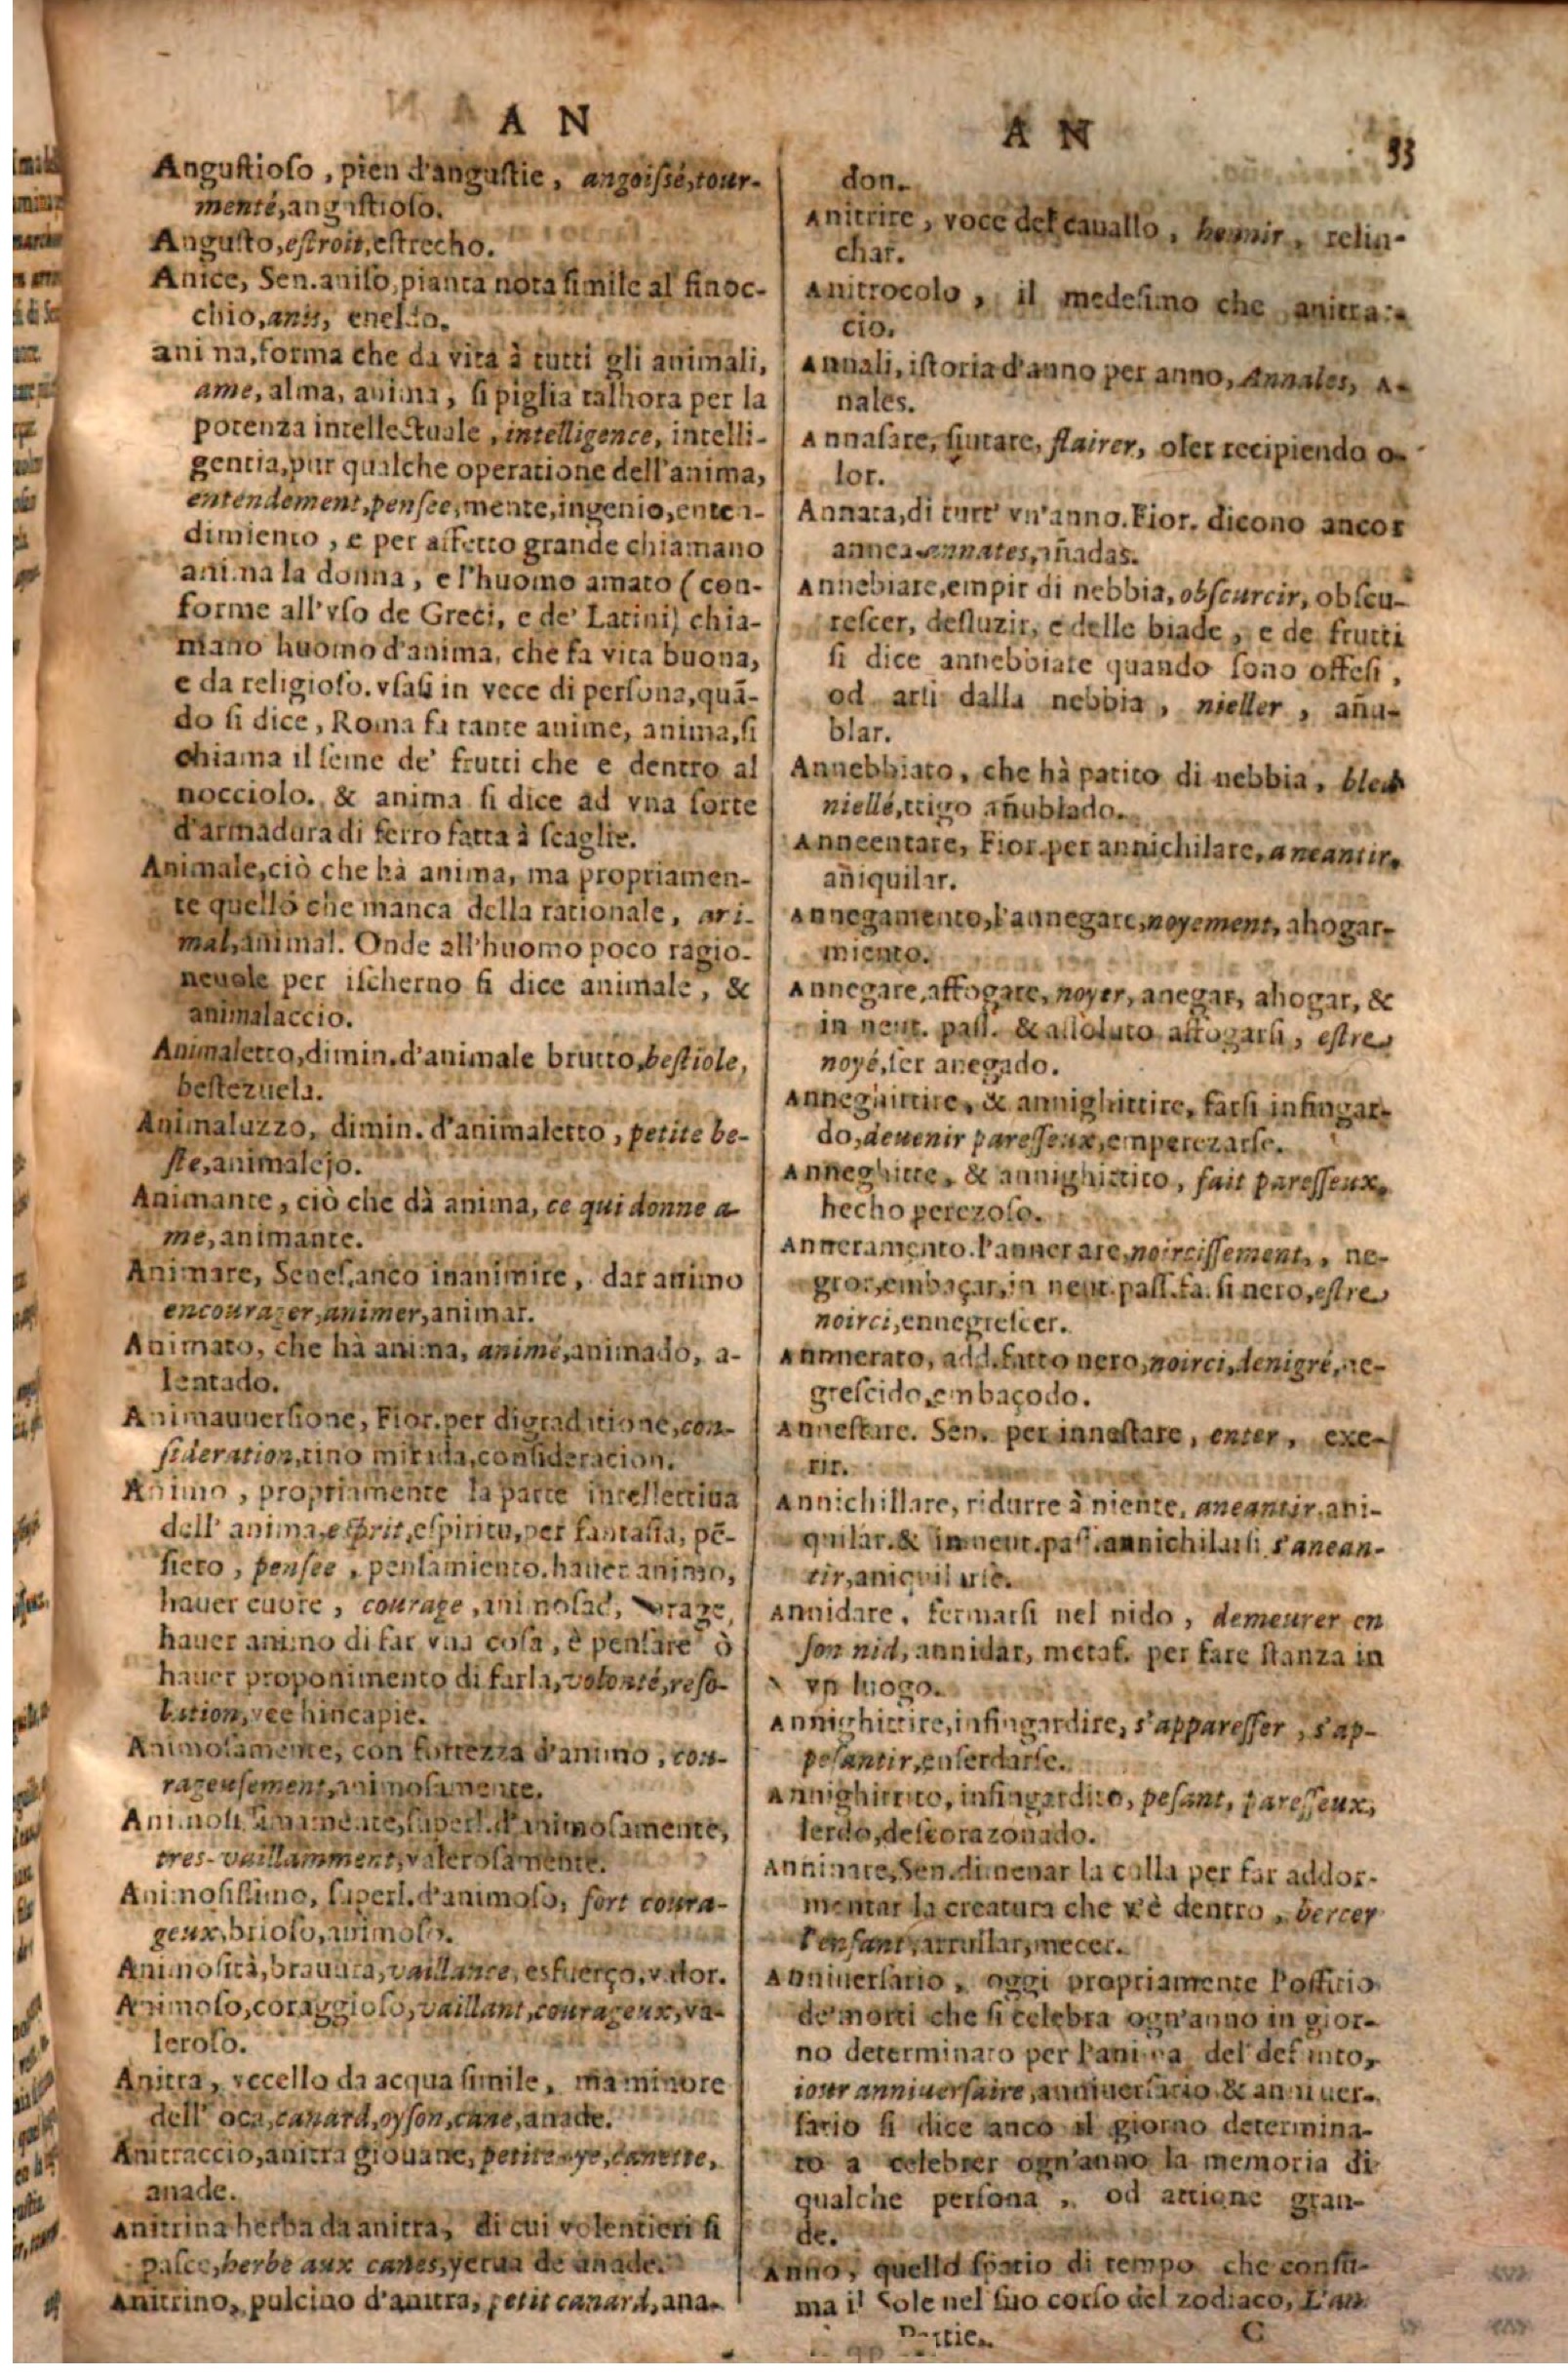 A N
Angustioso, pien d'angustie, angoissé, tour-
menté, angustioso.
Angusto, estroit, estrecho.
Anice, Sen. aniso, pianta nota simile al finoc-
chio, anis, eneldo.
anima, forma che da vita à tutti gli animali,
ame, alma, anima, si piglia talhora per la
potenza intellectuale, intelligence, intelli-
gentia, pur qualche operatione dell'anima,
entendement, pensee, mente, ingenio, enten-
dimiento, e per affetto grande chiamano
anima la donna, e l'huomo amato (con-
forme all'vso de Greci, e de' Latini) chia-
mano huomo d'anima, che fa vita buona,
e da religioso. vsasi in vece di persona, quã-
do si dice, Roma fa tante anime, anima, si
chiama il seme de' frutti che e dentro al
nocciolo. & anima si dice ad vna sorte
d'armadura di ferro fatta à scaglie.
Animale, ciò che hà anima, ma propriamen-
te quello che manca della rationale, ani-
mal, animal. Onde all'huomo poco ragio-
neuole per ischerno si dice animale, &
animalaccio.
Animaletto, dimin. d'animale brutto, bestiole,
bestezuela.
Animaluzzo, dimin. d'animaletto, petite be-
ste, animalejo.
Animante, ciò che dà anima, ce qui donne a-
me, animante.
Animare, Senes. anco inanimire, dar animo
encourager, animer, animar.
Animato, che hà anima, animé, animado, a-
lentado.
Animauuersione, Fior. per digraditione, con-
sideration, tino mirida, consideracion.
Animo, propriamente la parte intellettiua
dell' anima, esprit, espiritu, per fantasia, pẽ-
siero, pensee, pensamiento. hauer animo,
hauer cuore, courage, animosad,
hauer animo di far vna cosa, è pensare ò
hauer proponimento di farla, volonté, reso-
lution, vee hincapie.
Animosamente, con fortezza d'animo, cou-
rageusement, animosamente.
Animosissimamente, superl. d'animosamente,
tres-vaillamment, valerosamente.
Animosissimo, superl. d'animoso, fort coura-
geux, brioso, animoso.
Animosità, brauura, vaillance, esfuerço, valor.
Animoso, coraggioso, vaillant, courageux, va-
leroso.
Anitra, vccello da acqua simile, ma minore
dell' oca, canard, oyson, cane, anade.
Anitraccio, anitra giouane, petite oye, canette,
anade.
Anitrina herba da anitra, di cui volentieri si
pasce, herbe aux canes, yerua de anade.
Anitrino, pulcino d'anitra, petit canard, ana-
A N
33
don.
Anitrire, voce del cauallo, hennir, relin-
char.
Anitrocolo, il medesimo che anitra-
cio.
Annali, istoria d'anno per anno, Annales, A-
nales.
Annasare, fiutare, flairer, oler recipiendo o-
lor.
Annata, di tutt' vn'anno. Fior. dicono ancor
annea annates, añadas.
Annebiare, empir di nebbia, obscurcir, obscu-
rescer, desluzir, e delle biade, e de frutti
si dice annebbiate quando sono offesi,
od arsi dalla nebbia, nieller, añu-
blar.
Annebbiato, che hà patito di nebbia, bled
niellé, trigo añublado.
Anneentare, Fior. per annichilare, aneantir,
añiquilar.
Annegamento, l'annegare, noyement, ahogar-
miento.
Annegare, affogare, noyer, anegar, ahogar, &
in neut. pass. & assoluto affogarsi, estre
noyé, ser anegado.
Anneghittire, & annighittire, farsi infingar-
do, deuenir paresseux, emperezarse.
Anneghitte, & annighittito, fait paresseux,
hecho perezoso.
Anneramento. l'annerare, noircissement,, ne-
gror, embaçar, in neut. pass. fa. si nero, estre
noirci, ennegrescer.
Annnerato, add. fatto nero, noirci, denigré, ne-
grescido, embaçodo.
Annestare. Sen. per innestare, enter, exe-
rir.
Annichillare, ridurre à niente, aneantir, ani-
quilar. & in neut. pass. annichilarsi, s'anean-
tir, aniquilarse.
Annidare, fermarsi nel nido, demeurer en
son nid, annidar, metaf. per fare stanza in
vn luogo.
Annighittire, infingardire, s'apparesser, s'ap-
pesantir, enlerdarse.
Annighittito, infingardito, pesant, paresseux,
lerdo, descorazonado.
Anninare, Sen. dimenar la culla per far addor-
mentar la creatura che v'è dentro, bercer
l'enfant, arrullar, mecer.
Anniuersario, oggi propriamente l'officio
de' morti che si celebra ogn'anno in gior-
no determinato per l'anima del defunto,
iour anniuersaire, anniuersario & anniuer-
sario si dice anco il giorno determina-
to a celebrer ogn'anno la memoria di
qualche persona, od attione gran-
de.
Anno, quello spatio di tempo che consu-
ma il Sole nel suo corso del zodiaco, L'an
Partie. C